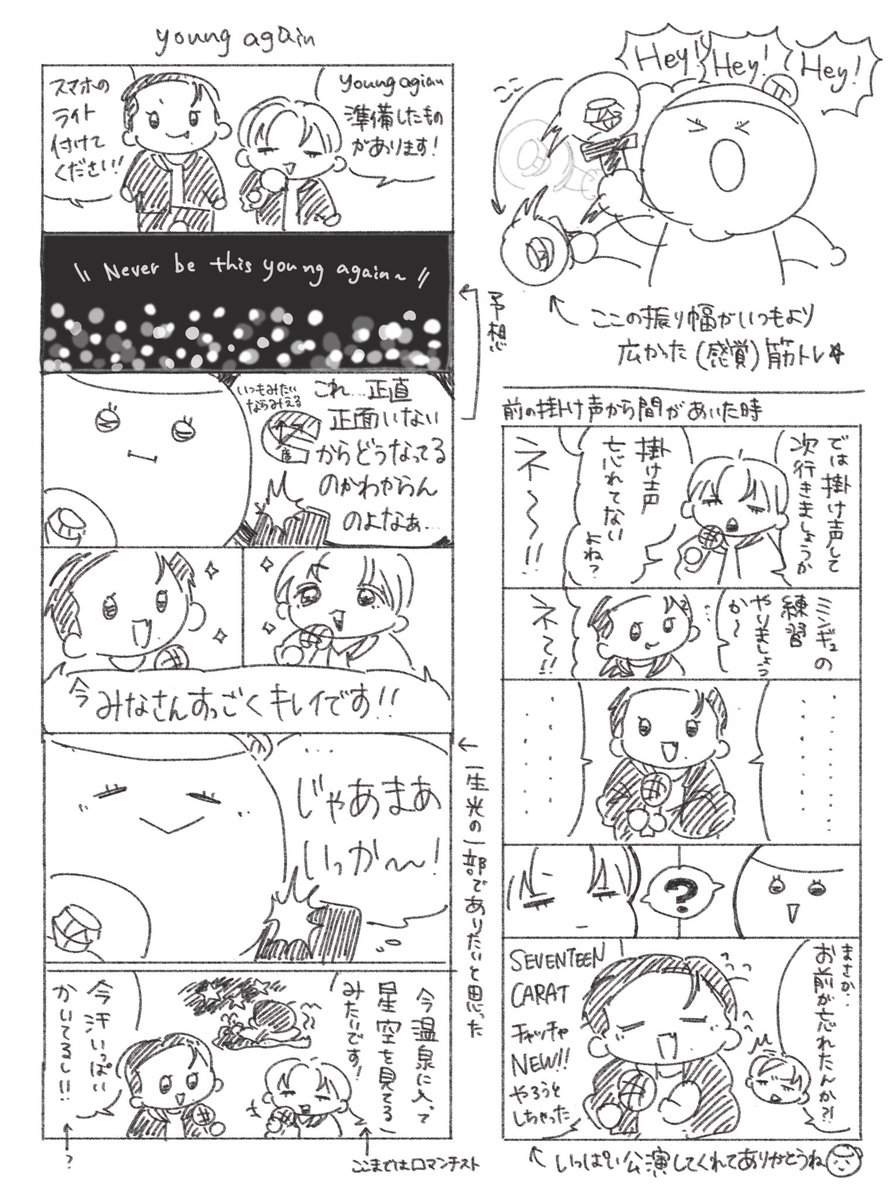 young again
young agian
準備したもの
があります！
スマホの
ライト
付けて
ください!!
\\ Never be this young again~ //
予想
いつもみたい
ならみえる
これ…正直
正面いない
からどうなってる
のかわからん
のよなぁ…
今みなさんすっごくキレイです!!
…
じゃあまあ
いっか〜!
一生光の一部でありたいと思った
今温泉に入って
星空を見てる
みたいです!
今汗いっぱい
かいてるし!!
?
ここまではロマンチスト
Hey!
Hey!
Hey!
ここ
ここの振り幅がいつもより
広かった(感覚)筋トレ
前の掛け声から間があいた時
では掛け声して
次行きましょうか
掛け声
忘れてない
よね?
ネ〜〜!!
ミンギュの
練習
やりましょう
か〜
ネ〜!!
?
まさか..
お前が忘れたんか?!
SEVENTEEN
CARAT
チャッチャ
NEW!!
やろうと
しちゃった
いっぱい公演してくれてありがとうね